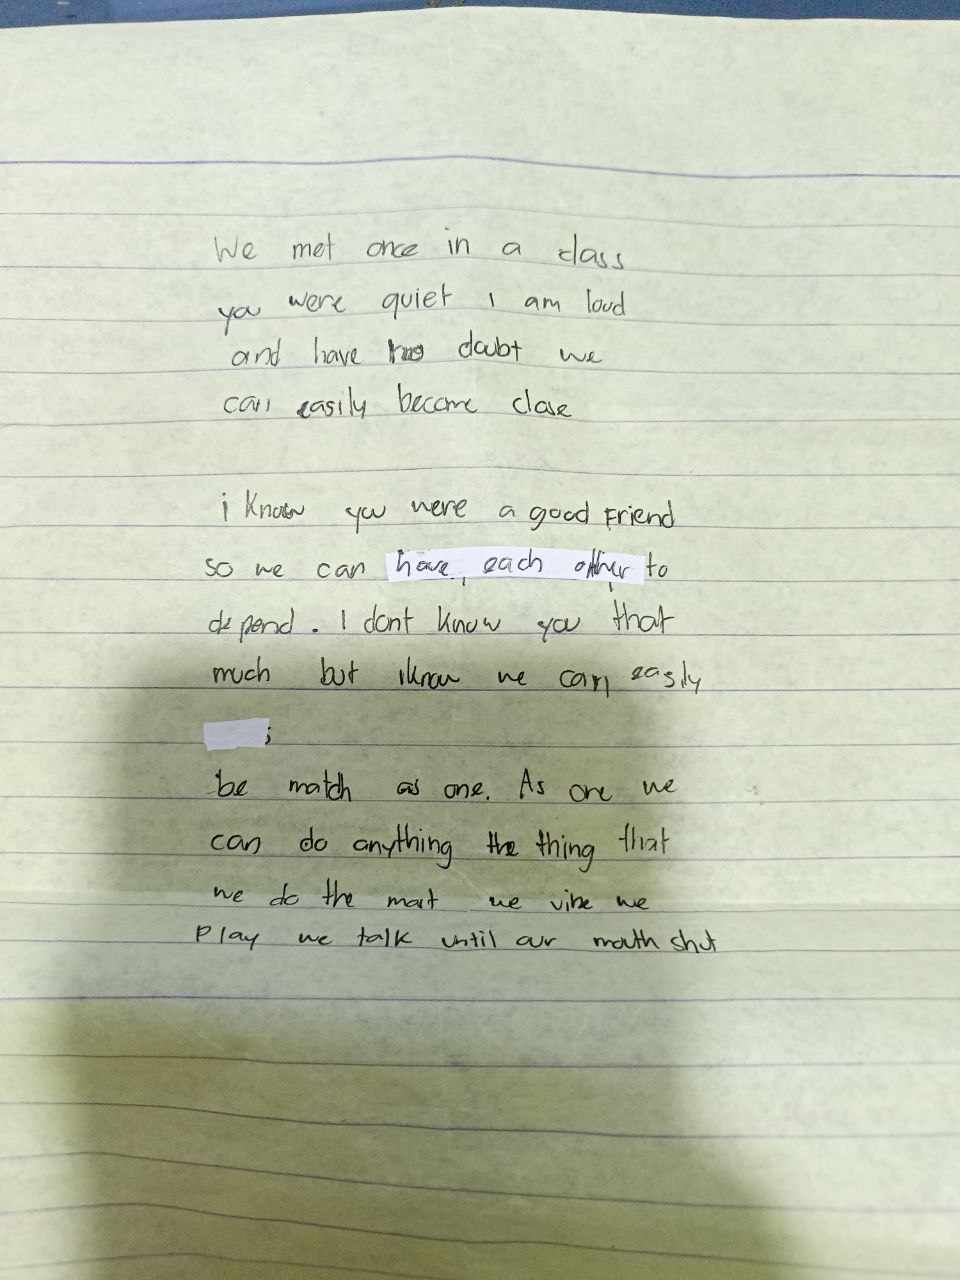 We met once in a class
you were quiet i am loud
and have no doubt we
can easily become close
i know you were a good friend
so we can have each other to
depend. I dont know you that
much but i know we can easily
be match as one. As one we
can do anything the thing that
we do the most we vibe we
play we talk until our mouth shut